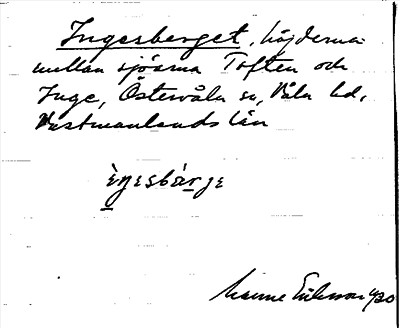 Ingesberget, höjderna
mellan sjöarna Toften och
Inge, Östervåla sn, Våla hd,
Västmanlands län
èŋesbàrje
Manne Eriksson 1920